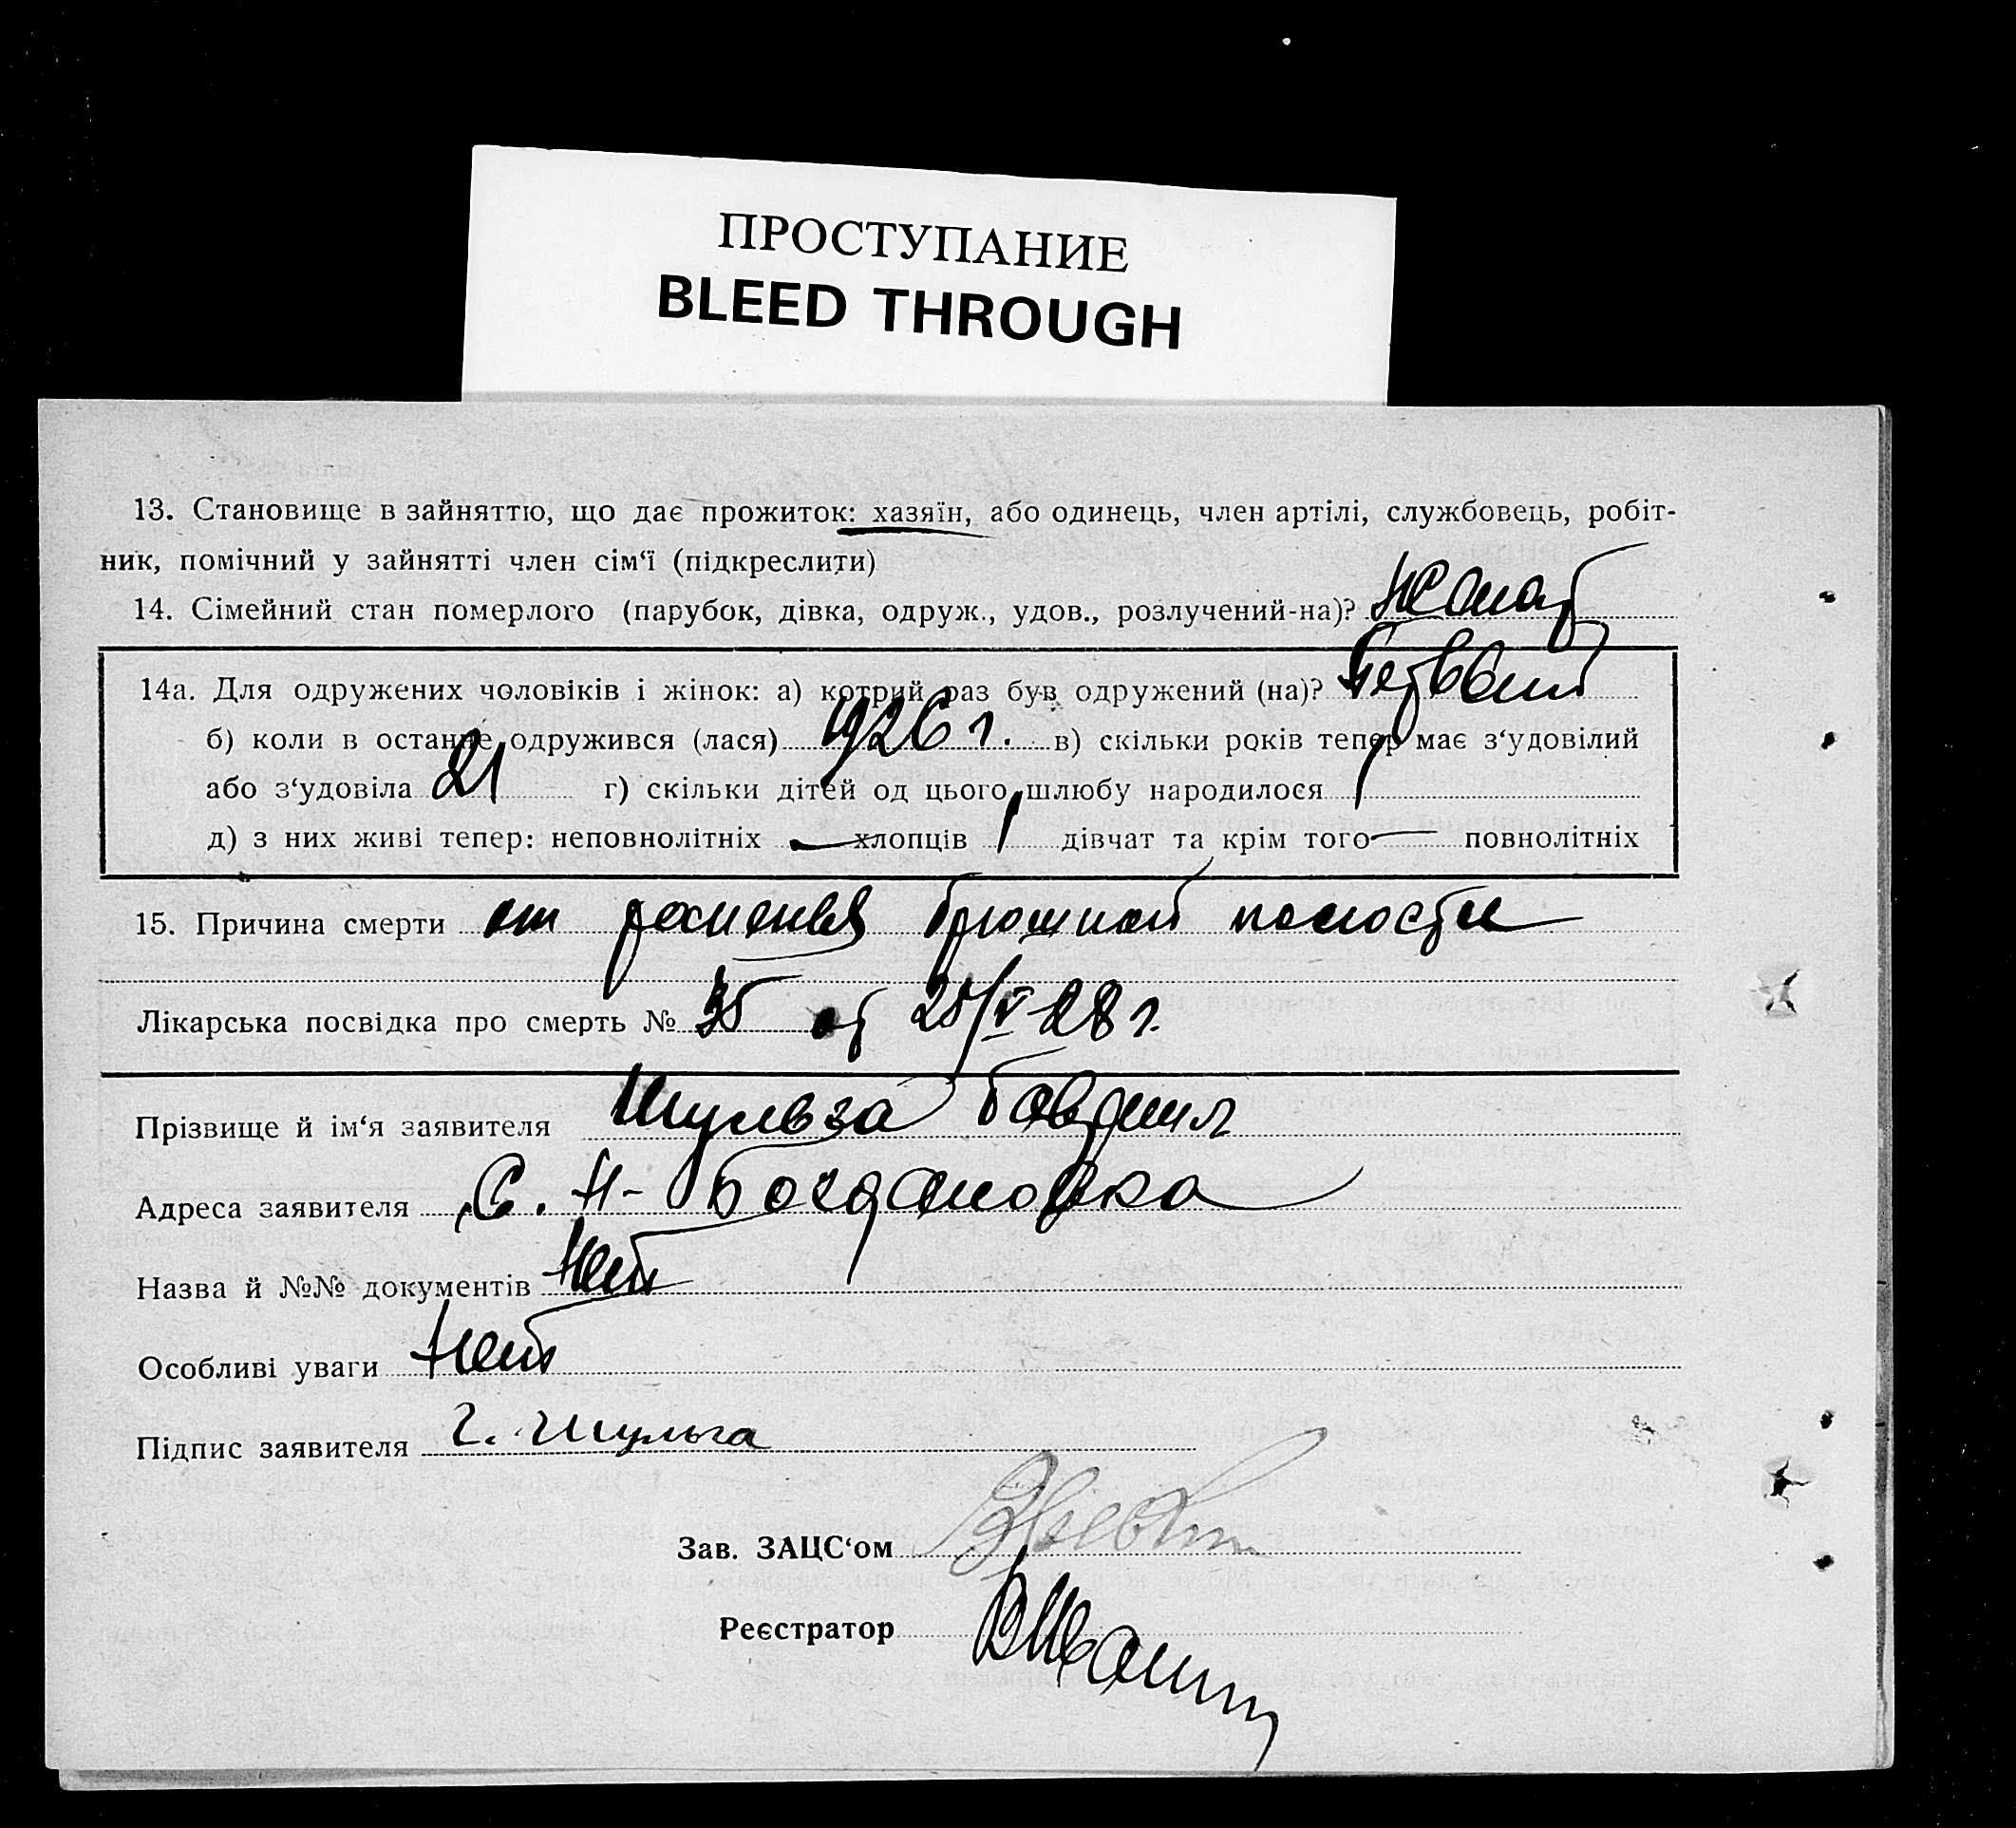 ПРОСТУПАНИЕ
BLEED THROUGH
13. Становище в зайняттю, що дає прожиток: хазяїн, або одинець, член артілі, службовець, робіт-
ник, помічний у зайнятті член сім‘ї (підкреслити)
14. Сімейний стан померлого (парубок, дівка, одруж., удов., розлучений-на)? женат
14а. Для одружених чоловіків і жінок: а) котрий раз був одружений (на)? Первый
б) коли в останнє одружився (лася) 1926 г. в) скільки років тепер має з‘удовілий
або з‘удовіла 21 г) скільки дітей од цього шлюбу народилося 1
д) з них живі тепер: неповнолітніх — хлопців 1 дівчат та крім того — повнолітніх
15. Причина смерти от брюшной полости
Лікарська посвідка про смерть № 35 от 25/V-28 г.
Прізвище й ім‘я заявителя Шульга Гавриил
Адреса заявителя С. Н-Богдановка
Назва й №№ документів Нет
Особливі уваги Нет
Підпис заявителя Г. Шульга
Зав. ЗАЦС‘ом
Реєстратор